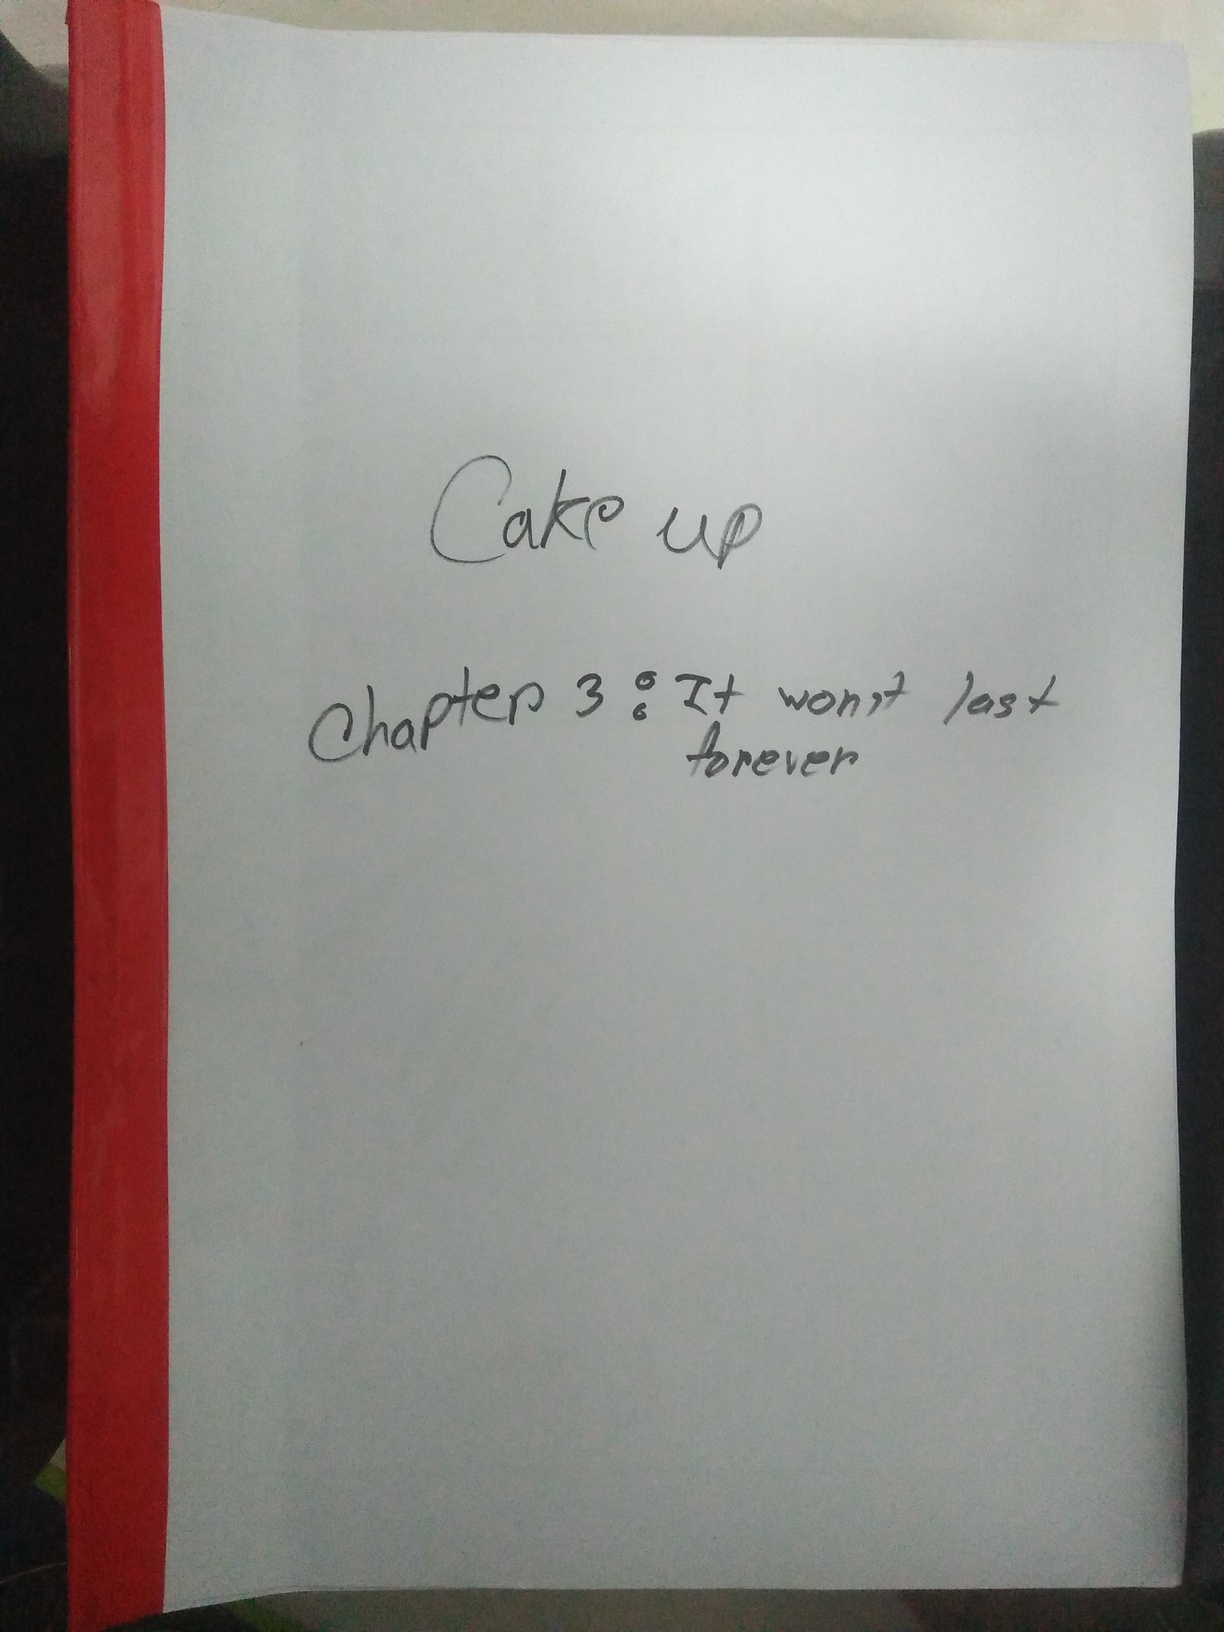 Cake up
Chapter 3: It won't last
forever